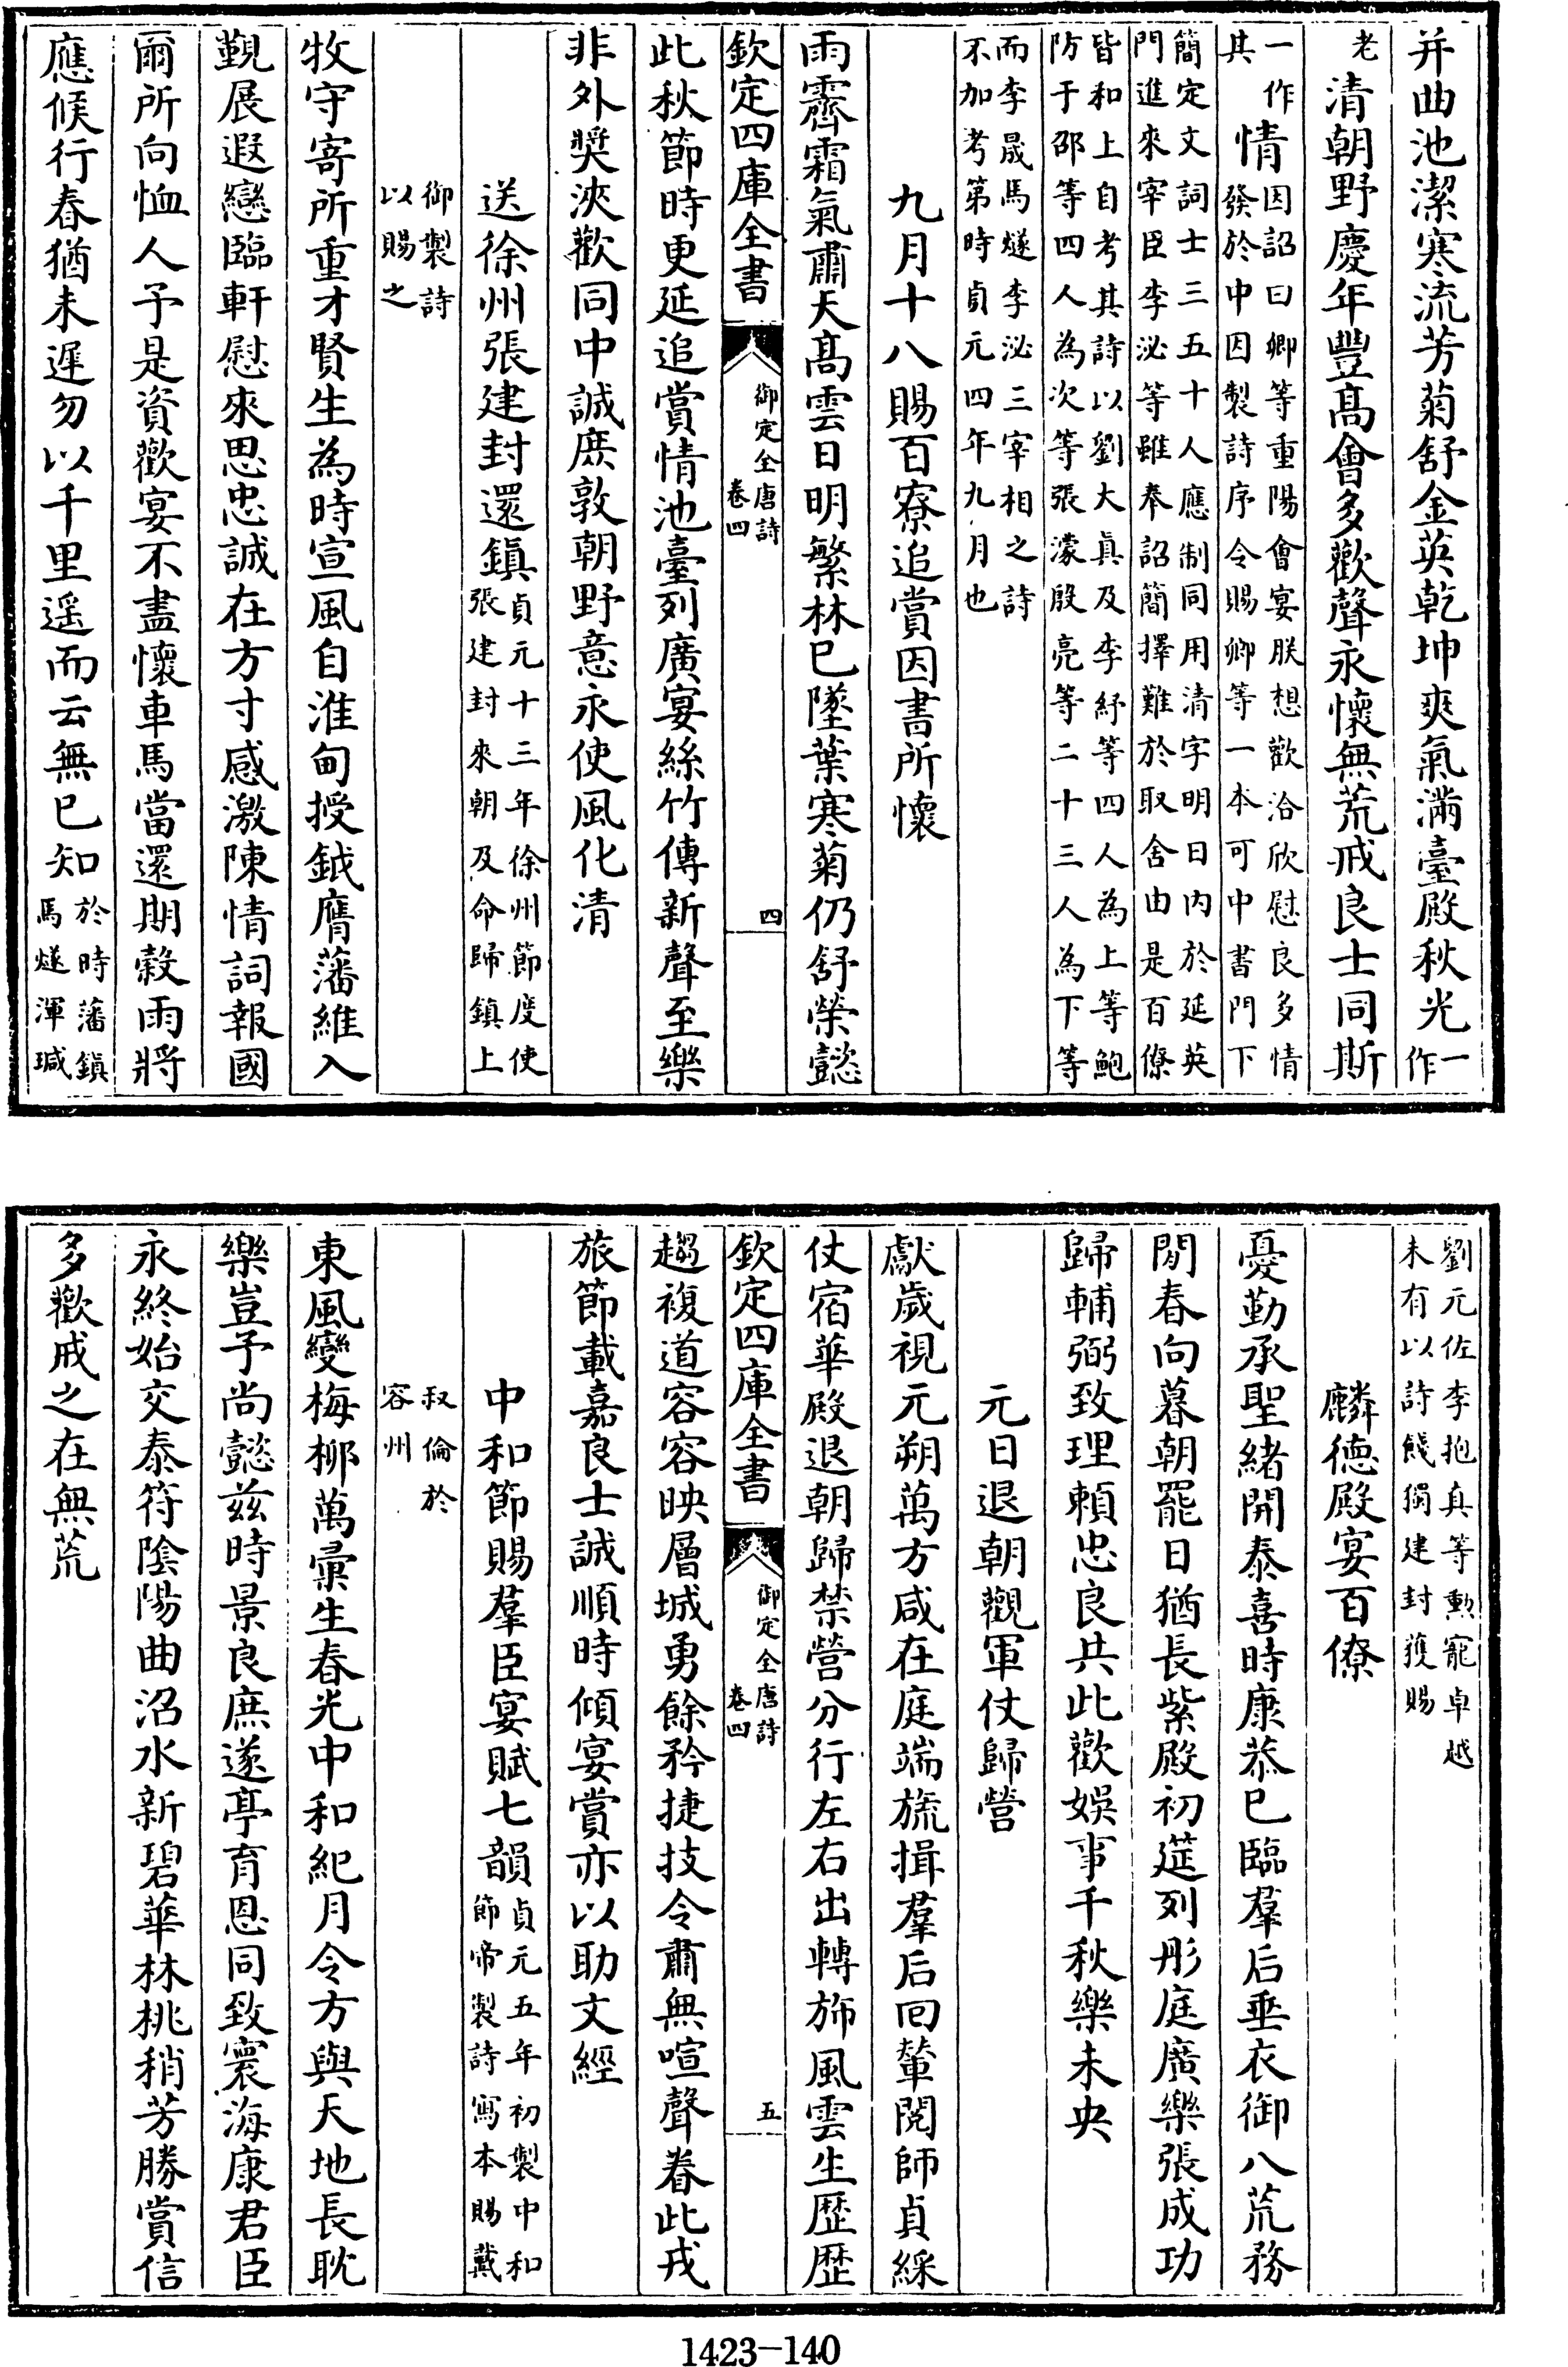 并曲池潔寒流芳菊舒金英乾坤爽氣滿臺殿秋光一作
老清朝野慶年豐髙會多歡聲永懷無荒戒良士同斯
一作其情因詔曰卿等重陽會宴朕想歡洽欣慰良多情發於中因製詩序令賜卿等一本可中書門下
簡定文詞士三五十人應制同用清字明日内於延英門進來宰臣李泌等雖奉詔簡擇難於取舍由是百僚
皆和上自考其詩以劉太真及李紓等四人為上等鮑防于邵等四人為次等張濛殷亮等二十三人為下等
而李晟馬燧李泌三宰相之詩不加考第時貞元四年九月也
九月十八賜百寮追賞因書所懷
雨霽霜氣肅天髙雲日明繁林已墜葉寒菊仍舒榮懿
欽定四庫全書
御定全唐詩卷四
四
此秋節時更延追賞情池臺列廣宴絲竹傳新聲至樂
非外奬浹歡同中誠庶敦朝野意永使風化清
送徐州張建封還鎮貞元十三年徐州節度使張建封來朝及命歸鎮上
御製詩以賜之
牧守寄所重才賢生為時宣風自淮甸授鉞膺藩維入
覲展遐戀臨軒慰來思忠誠在方寸感激陳情詞報國
爾所向恤人予是資歡宴不盡懷車馬當還期穀雨將
應候行春猶未遲勿以千里遥而云無已知於時藩鎮馬燧渾瑊
劉元佐李抱真等勲寵卓越未有以詩餞獨建封獲賜
麟德殿宴百僚
憂勤承聖緒開泰喜時康恭已臨羣后垂衣御八荒務
閒春向暮朝罷日猶長紫殿初筵列彤庭廣樂張成功
歸輔弼致理賴忠良共此歡娱事千秋樂未央
元日退朝觀軍仗歸營
獻歲視元朔萬方咸在庭端旒揖羣后回輦閲師貞綵
仗宿華殿退朝歸禁營分行左右出轉斾風雲生歴歴
欽定四庫全書
御定全唐詩卷四
五
趨複道容容映層城勇餘矜捷技令肅無喧聲眷此戎
旅節載嘉良士誠順時傾宴賞亦以助文經
中和節賜羣臣宴賦七韻貞元五年初製中和節帝製詩寫本賜戴
叔倫於容州
東風變梅柳萬彚生春光中和紀月令方與天地長耽
樂豈予尚懿兹時景良庶遂亭育恩同致寰海康君臣
永終始交泰符陰陽曲沼水新碧華林桃稍芳勝賞信
多歡戒之在無荒
1423-140